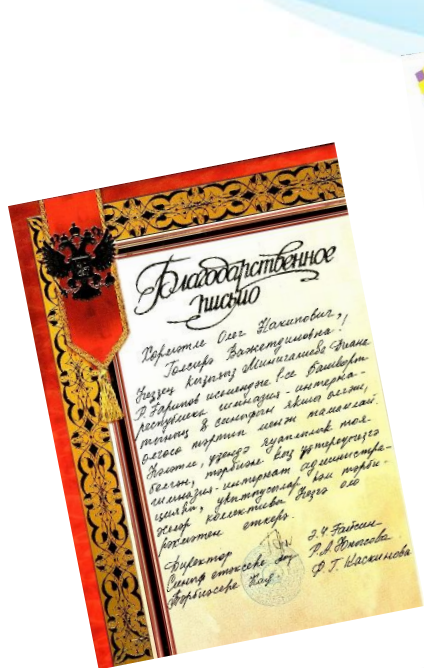 Благодарственное
письмо
Хөрмәтле Олег Накипович,
Гөлсирә Важетдиновна!
Һеҙҙең ҡыҙығыҙ Миңлегалиева Диана
Р. Гарипов исемендәге 1-се Башҡорт
республика гимназия-интерна-
тының 8 синыфын яҡшы
өлгәш, тәртип менән тамамлай.
тоя-
белгән, тәрбиәле ҡыҙ үҫтереүегеҙгә
гимназия-интернат администра-
цияһы, уҡытыусылар һәм тәрбиә-
селәр коллективы Һеҙгә оло
рәхмәтен еткерә.
Директор
Синыф етәксеһе Р.А. Юнусова
Тәрбиәсеһе Ф.Г. Ласкинова